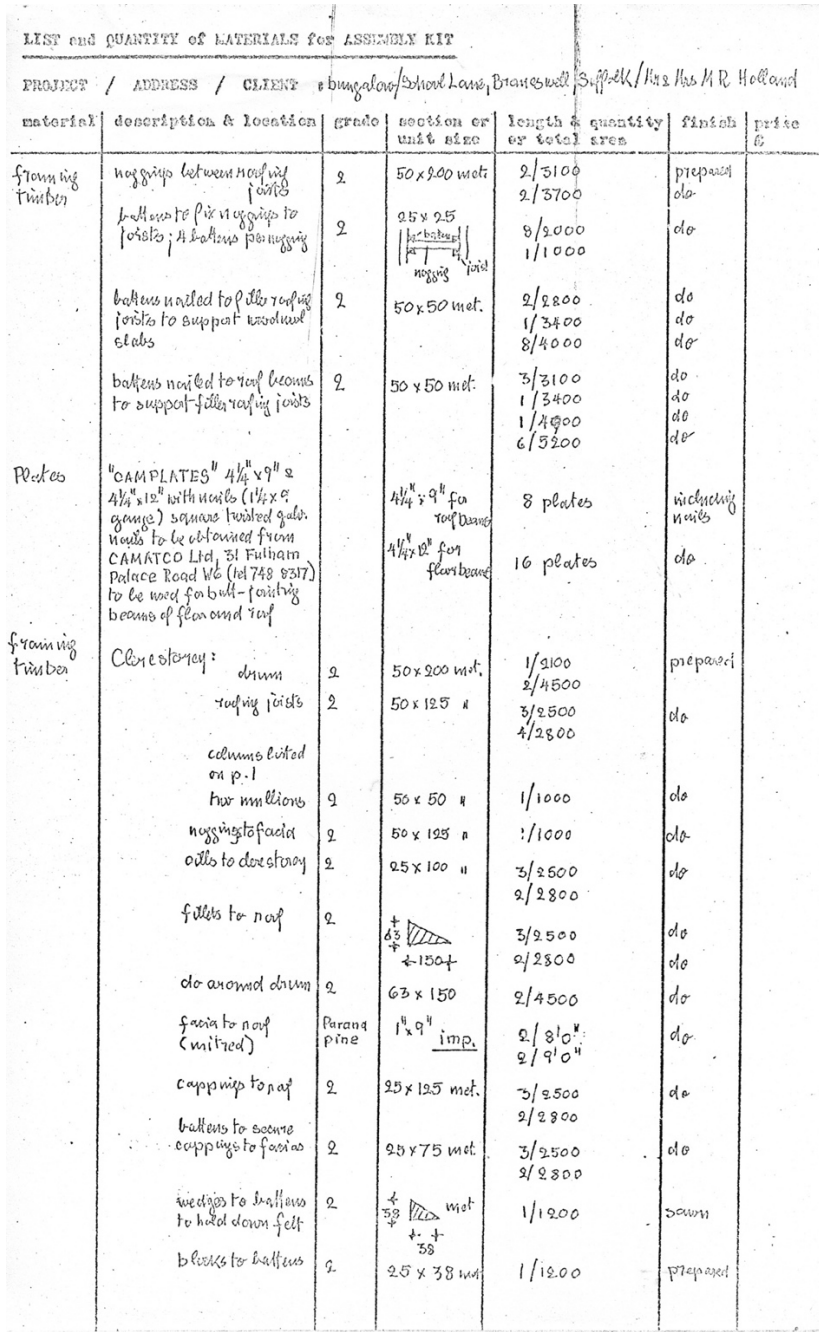 LIST and QUANTITY of MATERIALS for ASSEMBLY KIT
PROJECT / ADDRESS / CLIENT : bungalow/School Lane, Brameswell, Suffolk/Mr & Mrs M R Holland
material description & location grade section or unit size length & quantity or total area finish price £
framing timber noggings between roofing joists 2 50 x 200 met. 2/3100 prepared
2/3700 do
battens to fix noggings to joists; 4 battens per nogging 2 25 x 25 8/2000 do
batten 1/1000
nogging joist
battens nailed to filler roofing joists to support woodwool slabs 2 50 x 50 met. 2/2800 do
1/3400 do
8/4000 do
battens nailed to roof beams to support filler roofing joists 2 50 x 50 met. 3/3100 do
1/3400 do
1/4000 do
6/5200 do
Plates "CAMPLATES" 4¼" x 9" &
4¼" x 12" with nails (1¼ x 9 gauge) square twisted galv. nails to be obtained from CAMATCO Ltd, 31 Fulham Palace Road W6 (tel 748 8317) to be used for butt-jointing beams of floor and roof
4¼" x 9" for roof beams 8 plates including nails
4¼" x 12" for floor beams 16 plates do
framing timber Clerestorey:
drum 2 50 x 200 met. 1/2100 prepared
2/4500
roofing joists 2 50 x 125 " 3/2500 do
4/2800
columns listed on p.1
two mullions 2 50 x 50 " 1/1000 do
noggings to facia 2 50 x 125 " 1/1000 do
cills to clerestorey 2 25 x 100 " 3/2500 do
2/2800
fillets to roof 2 63 150 3/2500 do
2/2800 do
do around drum 2 63 x 150 2/4500 do
facia to roof (mitred) Parana pine 1" x 9" imp. 2/8'0" do
2/9'0"
cappings to roof 2 25 x 125 met. 3/2500 do
2/2800
battens to secure cappings to facias 2 25 x 75 met. 3/2500 do
2/2800
wedges to battens to hold down felt 2 38 38 met 1/1200 sawn
blocks to battens 2 25 x 38 met 1/1200 prepared